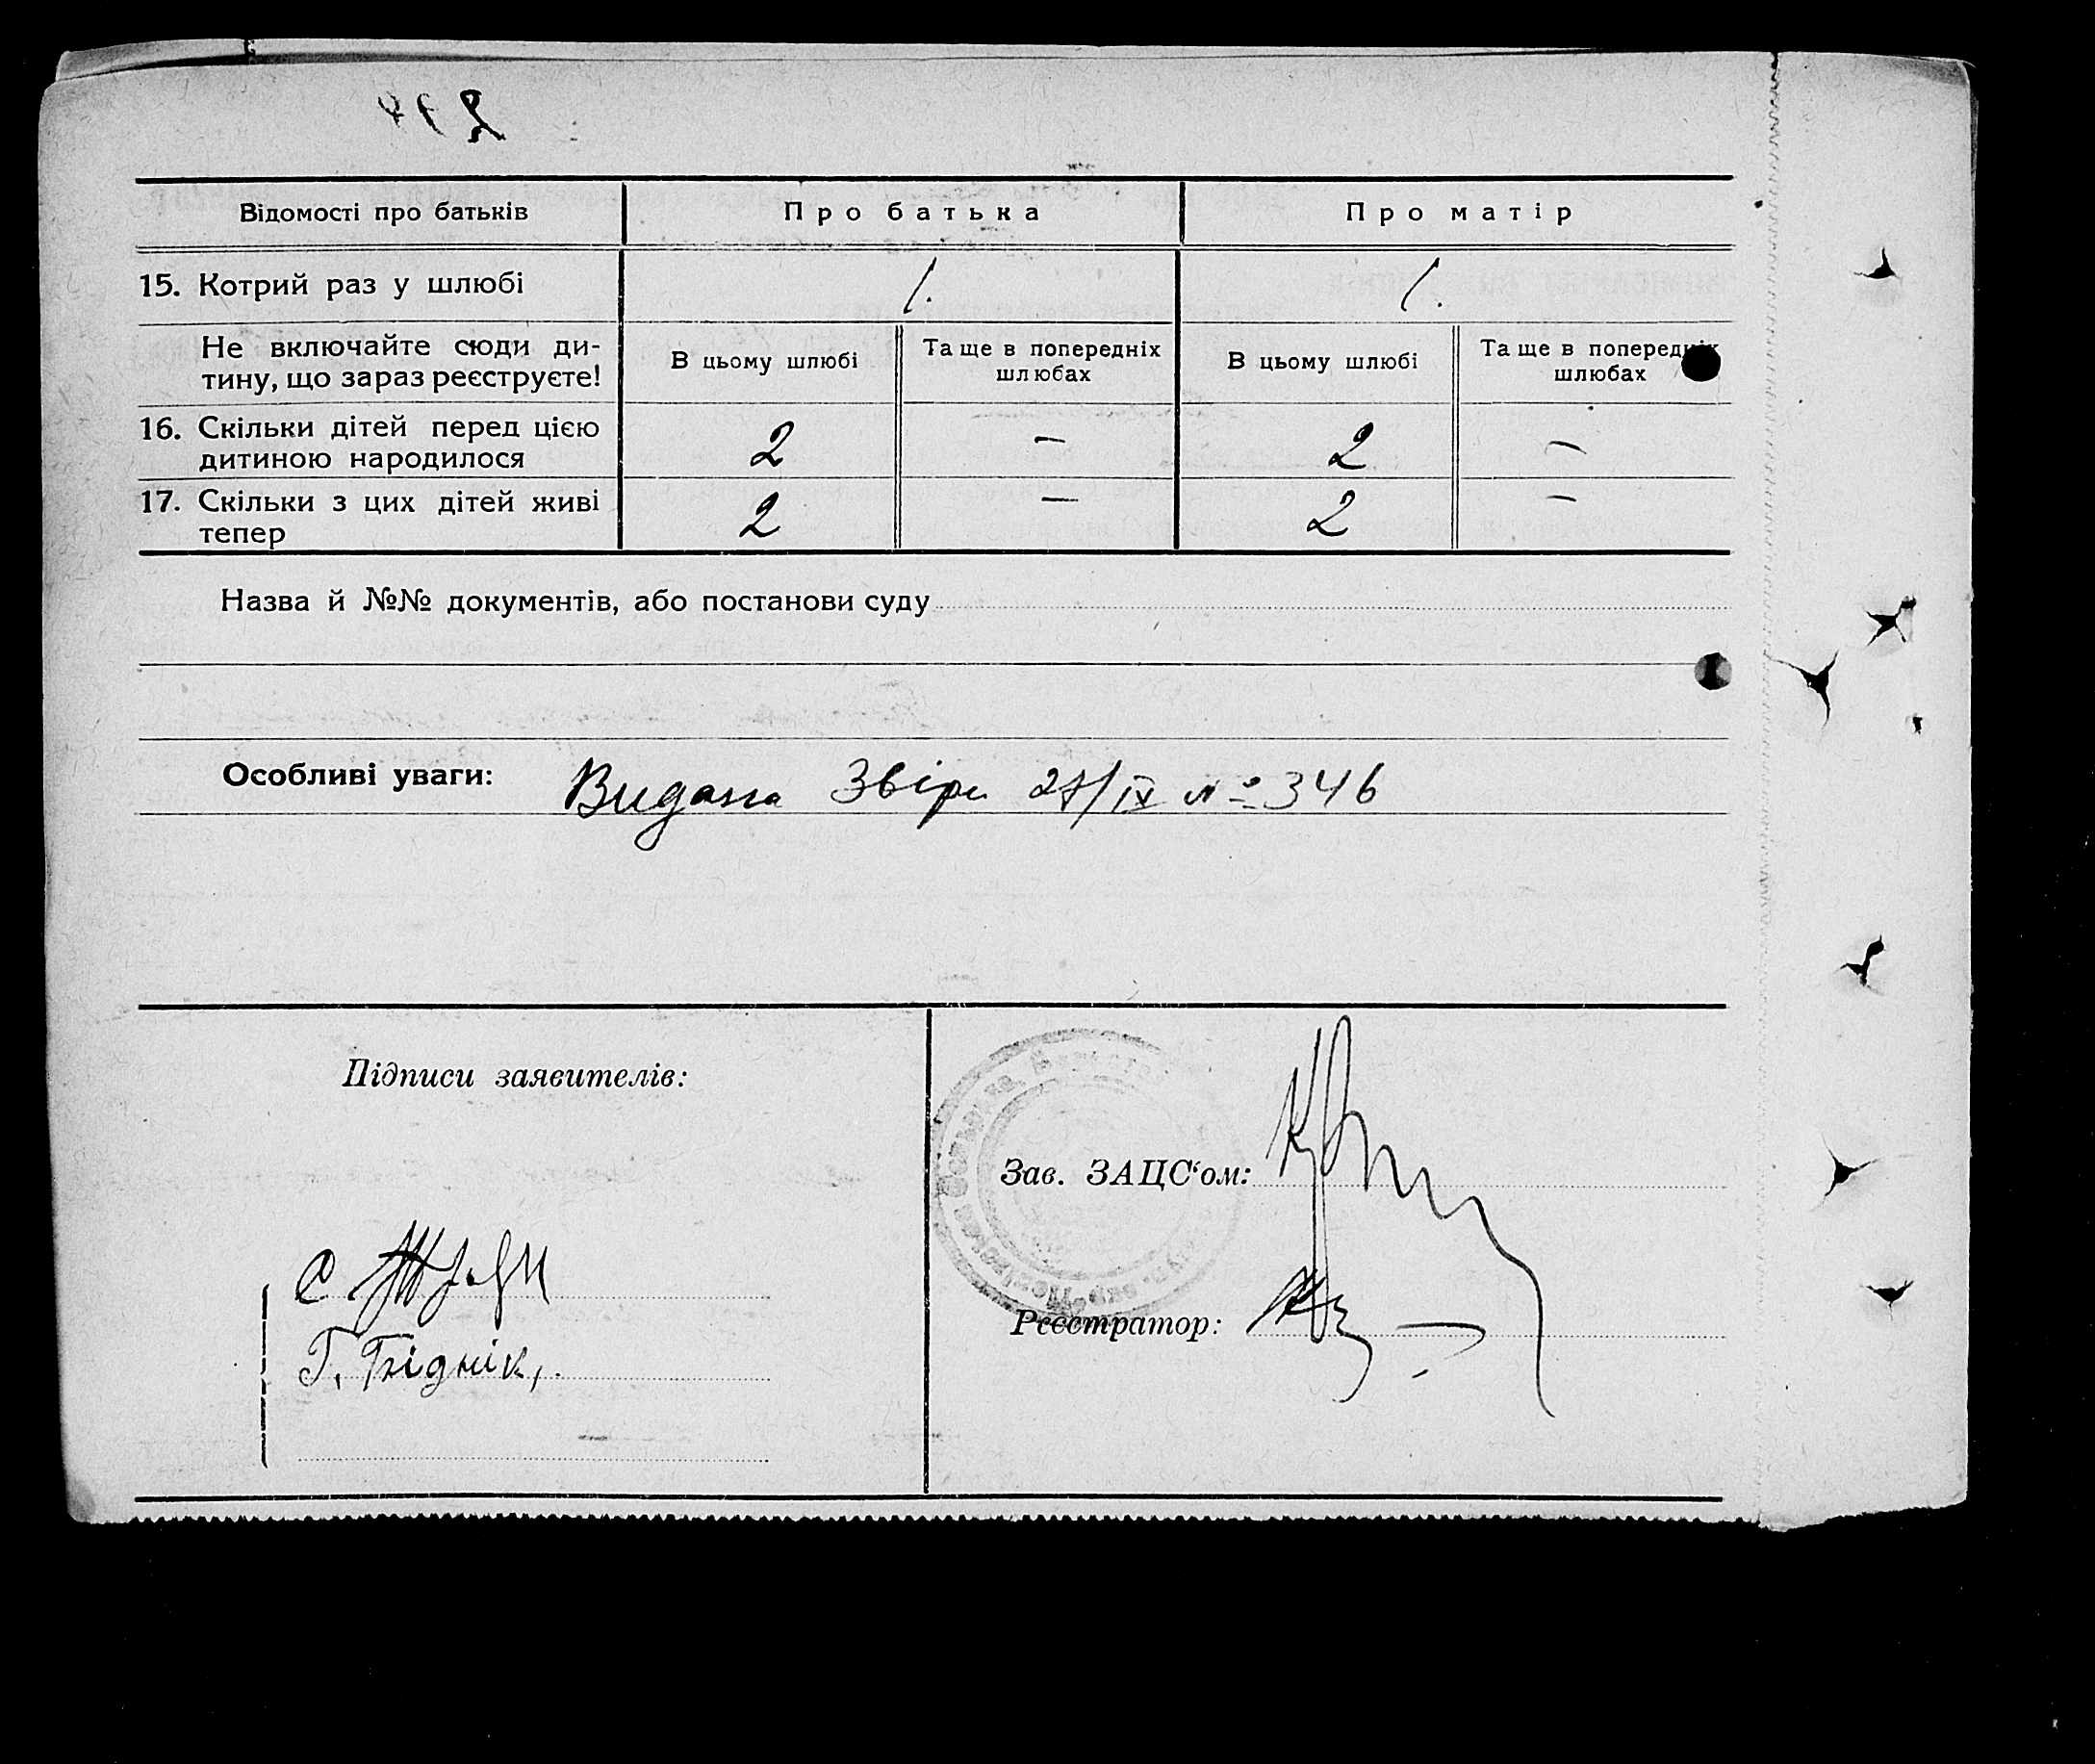 Відомості про батьків Про батька Про матір
15. Котрий раз у шлюбі 1. 1.
Не включайте сюди ди-
тину, що зараз реєструєте!
В цьому шлюбі
Та ще в попередніх
шлюбах
В цьому шлюбі
Та ще в попередніх
шлюбах
16. Скільки дітей перед цією
дитиною народилося
2 – 2 –
17. Скільки з цих дітей живі
тепер
2 – 2 –
Назва й №№ документів, або постанови суду
Особливі уваги: Видана Звіри 27/IX № 346
Підписи заявителів:
Зав. ЗАЦС‘ом:
С
Г.
Реєстратор: